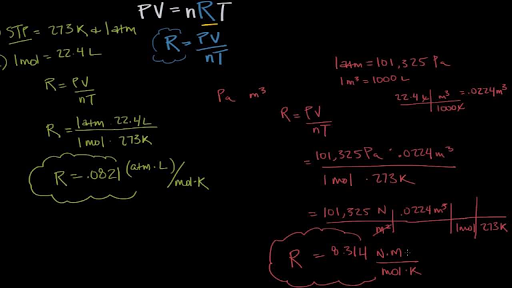 PV = nRT
R = PV/nT
) STP = 273 K & 1 atm
) 1 mol = 22.4 L
R = PV/nT
R = 1 atm · 22.4 L / 1 mol · 273 K
R = .0821 (atm · L)/mol·K
Pa m³
1 atm = 101,325 Pa
1 m³ = 1000 L
22.4 L | m³ / 1000 = .0224 m³
R = PV/nT
= 101,325 Pa · .0224 m³ / 1 mol · 273 K
= 101,325 N | .0224 m³ / m² | 1 mol | 273 K
R = 8.314 N·M / mol·K